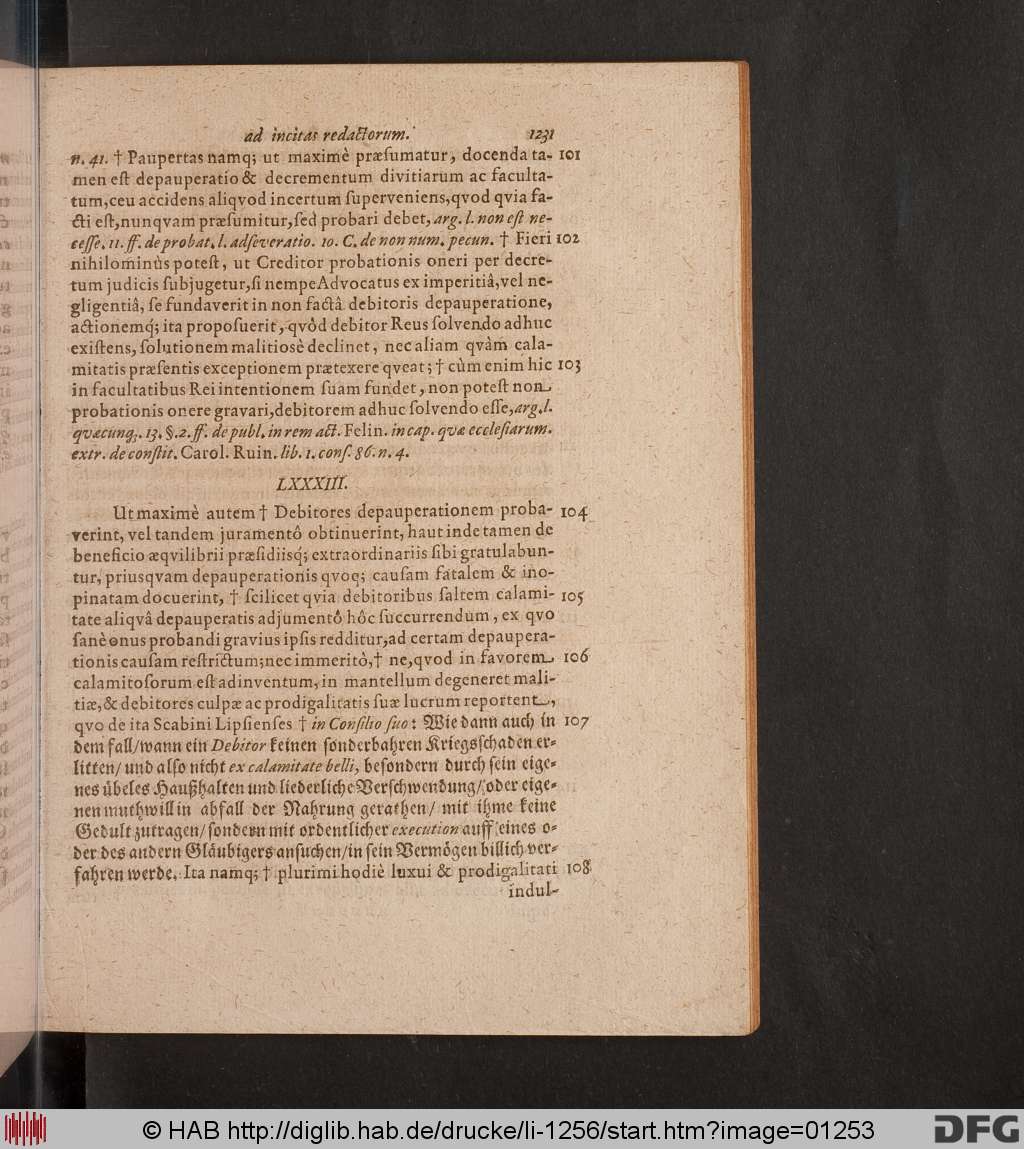 ad incitas redactorum. 1231
n. 41. † Paupertas namq; ut maximè præsumatur, docenda ta- 101
men est depauperatio & decrementum divitiarum ac faculta-
tum, ceu accidens aliqvod incertum superveniens, qvod qvia fa-
cti est, nunqvam præsumitur, sed probari debet, arg. l. non est ne-
cesse. 11. ff. de probat. l. adseveratio. 10. C. de non num. pecun. † Fieri 102
nihilominùs potest, ut Creditor probationis oneri per decre-
tum judicis subjugetur, si nempe Advocatus ex imperitiâ, vel ne-
gligentiâ, se fundaverit in non factâ debitoris depauperatione,
actionemq́; ita proposuerit, qvòd debitor Reus solvendo adhuc
existens, solutionem malitiosè declinet, nec aliam qvàm cala-
mitatis præsentis exceptionem prætexere qveat; † cùm enim hic 103
in facultatibus Rei intentionem suam fundet, non potest non
probationis onere gravari, debitorem adhuc solvendo esse, arg. l.
qvæcunq;. 13. §. 2. ff. de publ. in rem act. Felin. in cap. qvæ ecclesiarum.
extr. de constit. Carol. Ruin. lib. 1. cons. 86. n. 4.
LXXXIII.
Ut maximè autem † Debitores depauperationem proba- 104
verint, vel tandem juramentô obtinuerint, haut inde tamen de
beneficio æqvilibrii præsidiisq́; extraordinariis sibi gratulabun-
tur, priusqvam depauperationis qvoq; causam fatalem & ino-
pinatam docuerint, † scilicet qvia debitoribus saltem calami- 105
tate aliqvâ depauperatis adjumentô hôc succurrendum, ex qvo
sanè onus probandi gravius ipsis redditur, ad certam depaupera-
tionis causam restrictum; nec immeritò, † ne, qvod in favorem 106
calamitosorum est adinventum, in mantellum degeneret mali-
tiæ, & debitores culpæ ac prodigalitatis suæ lucrum reportent,
qvo de ita Scabini Lipsienses † in Consilio suo: Wie dann auch in 107
dem fall/ wann ein Debitor keinen sonderbahren Kriegsschaden er-
litten/ und also nicht ex calamitate belli, besondern durch sein eige-
nes übeles Haußhalten und liederliche Verschwendung/ oder eige-
nen muthwill in abfall der Nahrung gerathen/ mit ihme keine
Gedult zutragen/ sondern mit ordentlicher execution auff eines o-
der des andern Gläubigers ansuchen/ in sein Vermögen billich ver-
fahren werde. Ita namq; † plurimi hodiè luxui & prodigalitati 108
indul-
© HAB http://diglib.hab.de/drucke/li-1256/start.htm?image=01253
DFG